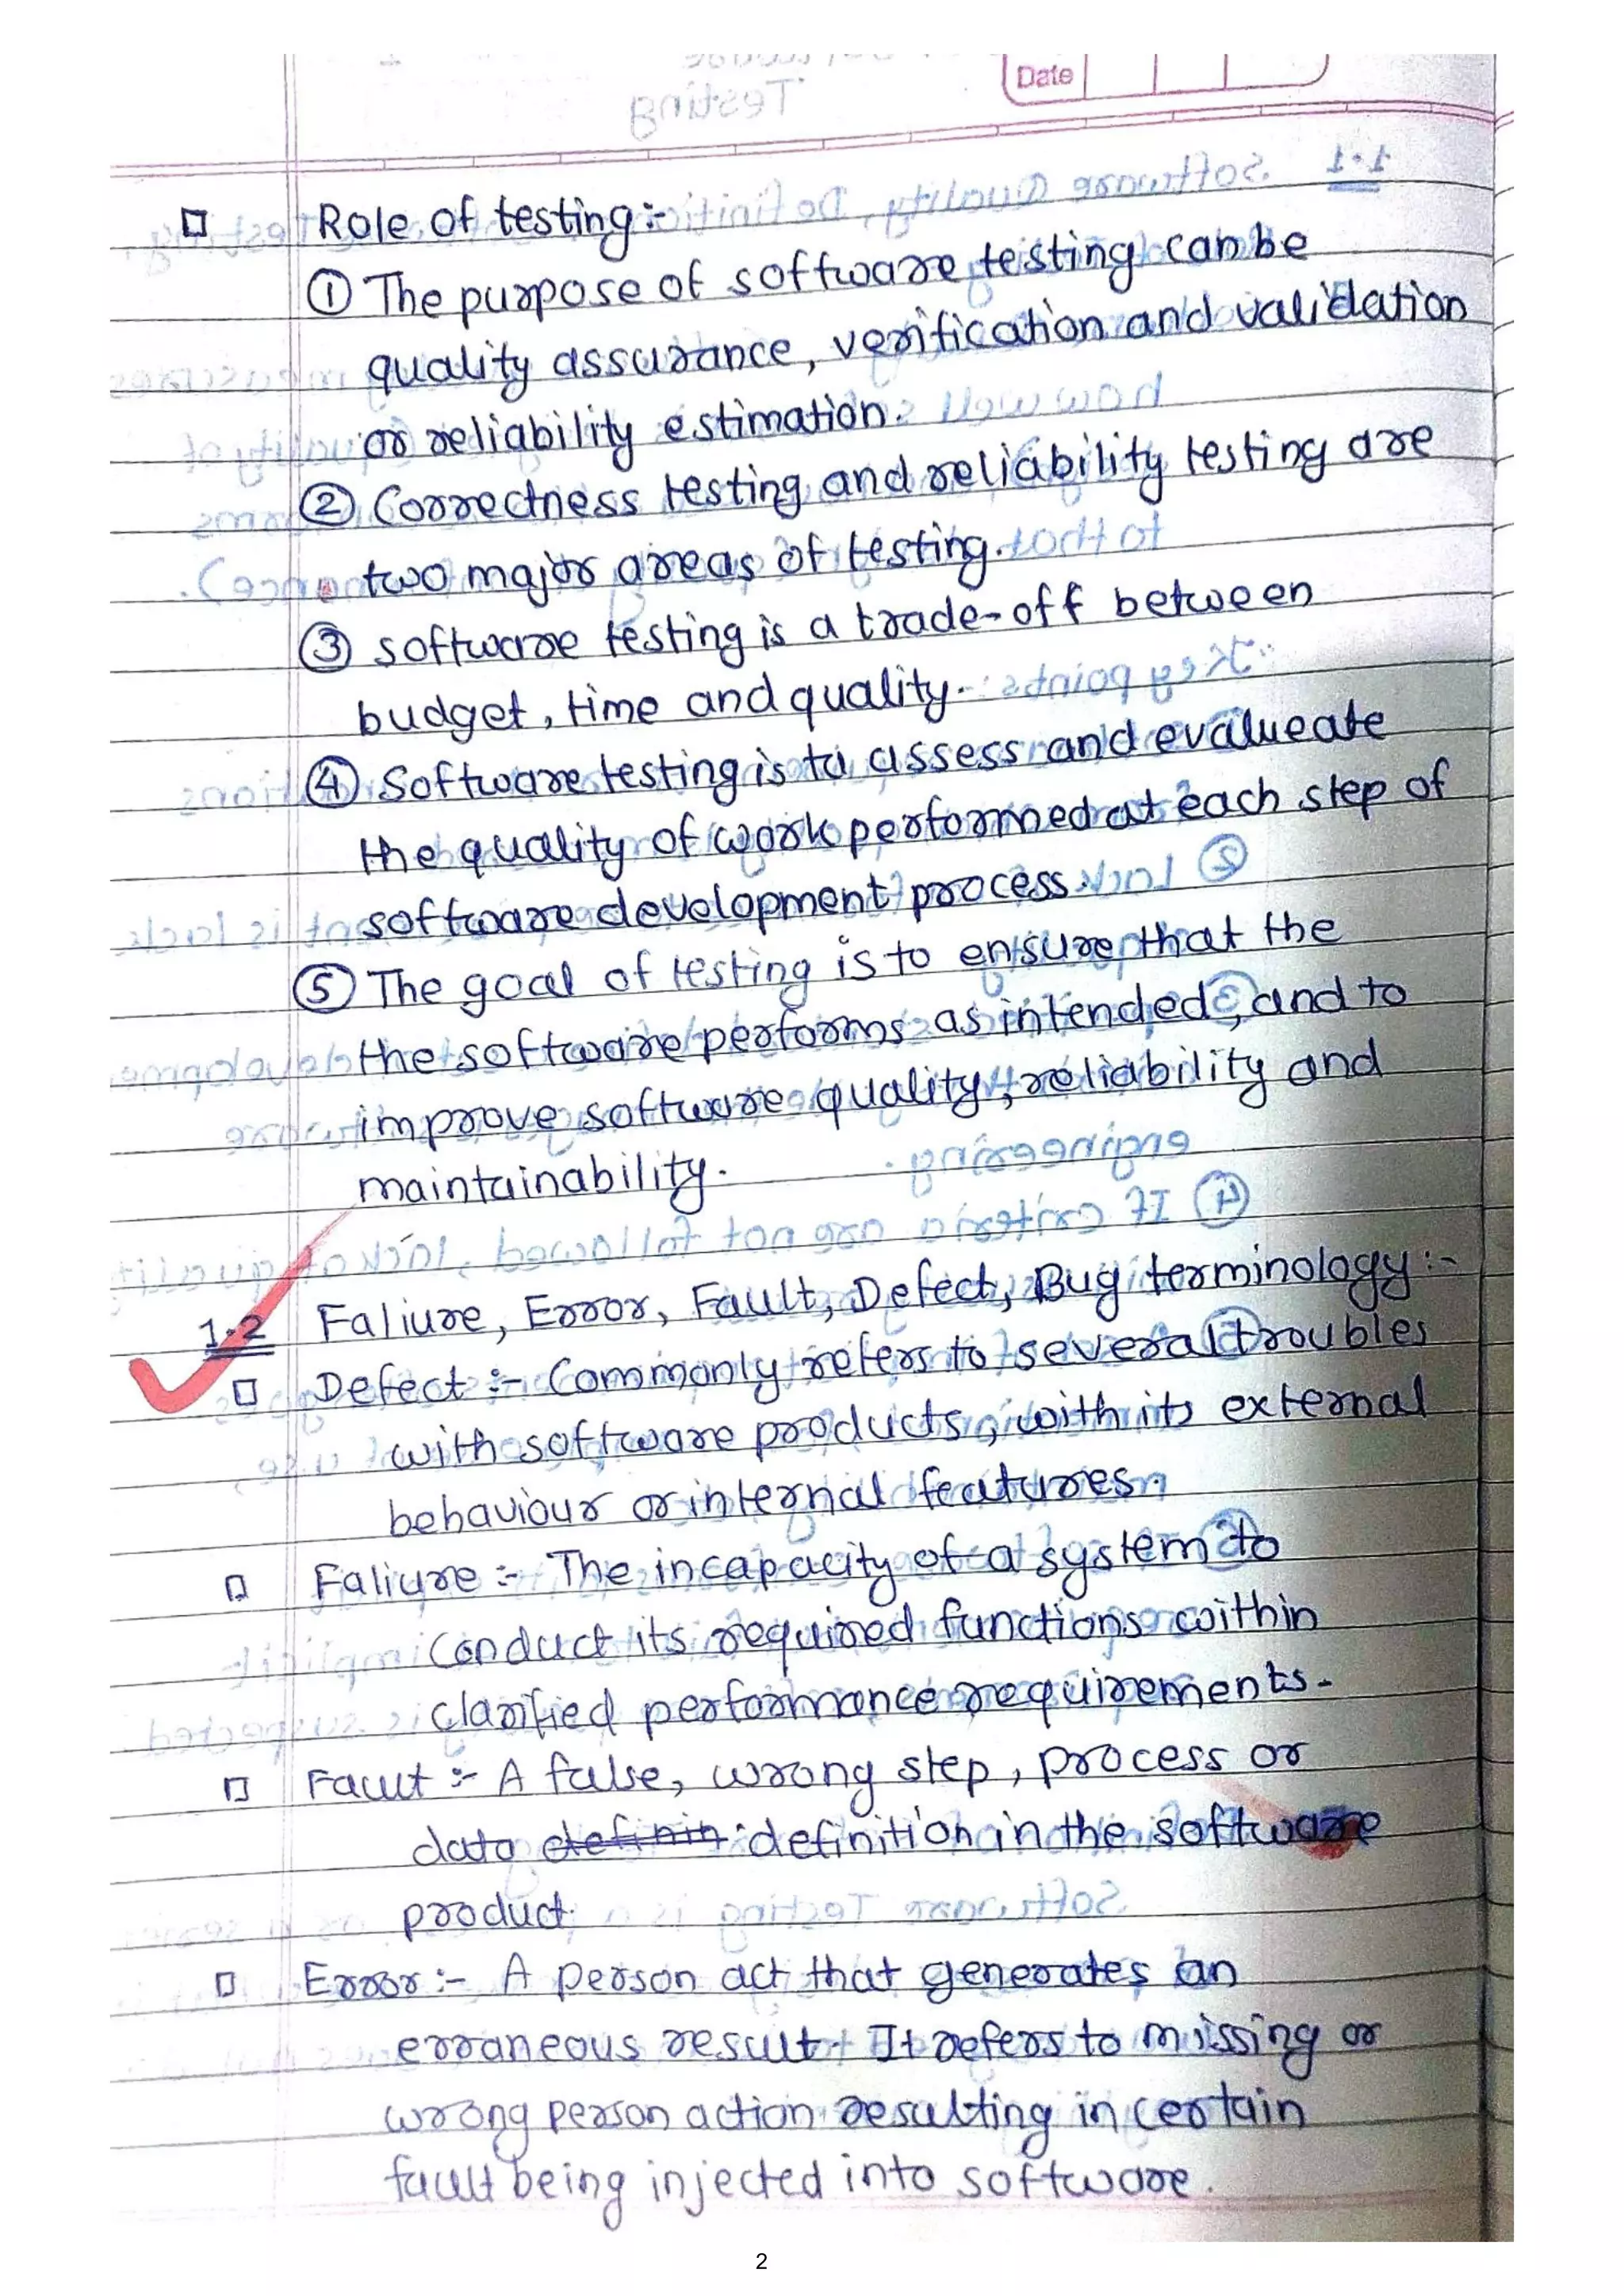 Date
Testing
□ Role of testing :-
① The purpose of software testing can be
quality assurance, verification and validation
or reliability estimation.
② Correctness testing and reliability testing are
two major areas of testing.
③ software testing is a trade-off between
budget, time and quality.
④ Software testing is to assess and evalueate
the quality of work performed at each step of
software development process.
⑤ The goal of testing is to ensure that the
the software performs as intended, and to
improve software quality, reliability and
maintainability.
1.2 Faliure, Error, Fault, Defect, Bug terminology :-
□ Defect :- Commonly refers to several troubles
with software products, with its external
behaviour or internal features.
□ Faliure :- The incapacity of a system to
conduct its required functions within
clarified performance requirements.
□ Fault :- A false, wrong step, process or
data definin definition in the software
product
□ Error :- A person act that generates an
erraneous result. It refers to missing or
wrong person action resulting in certain
fault being injected into software.
2